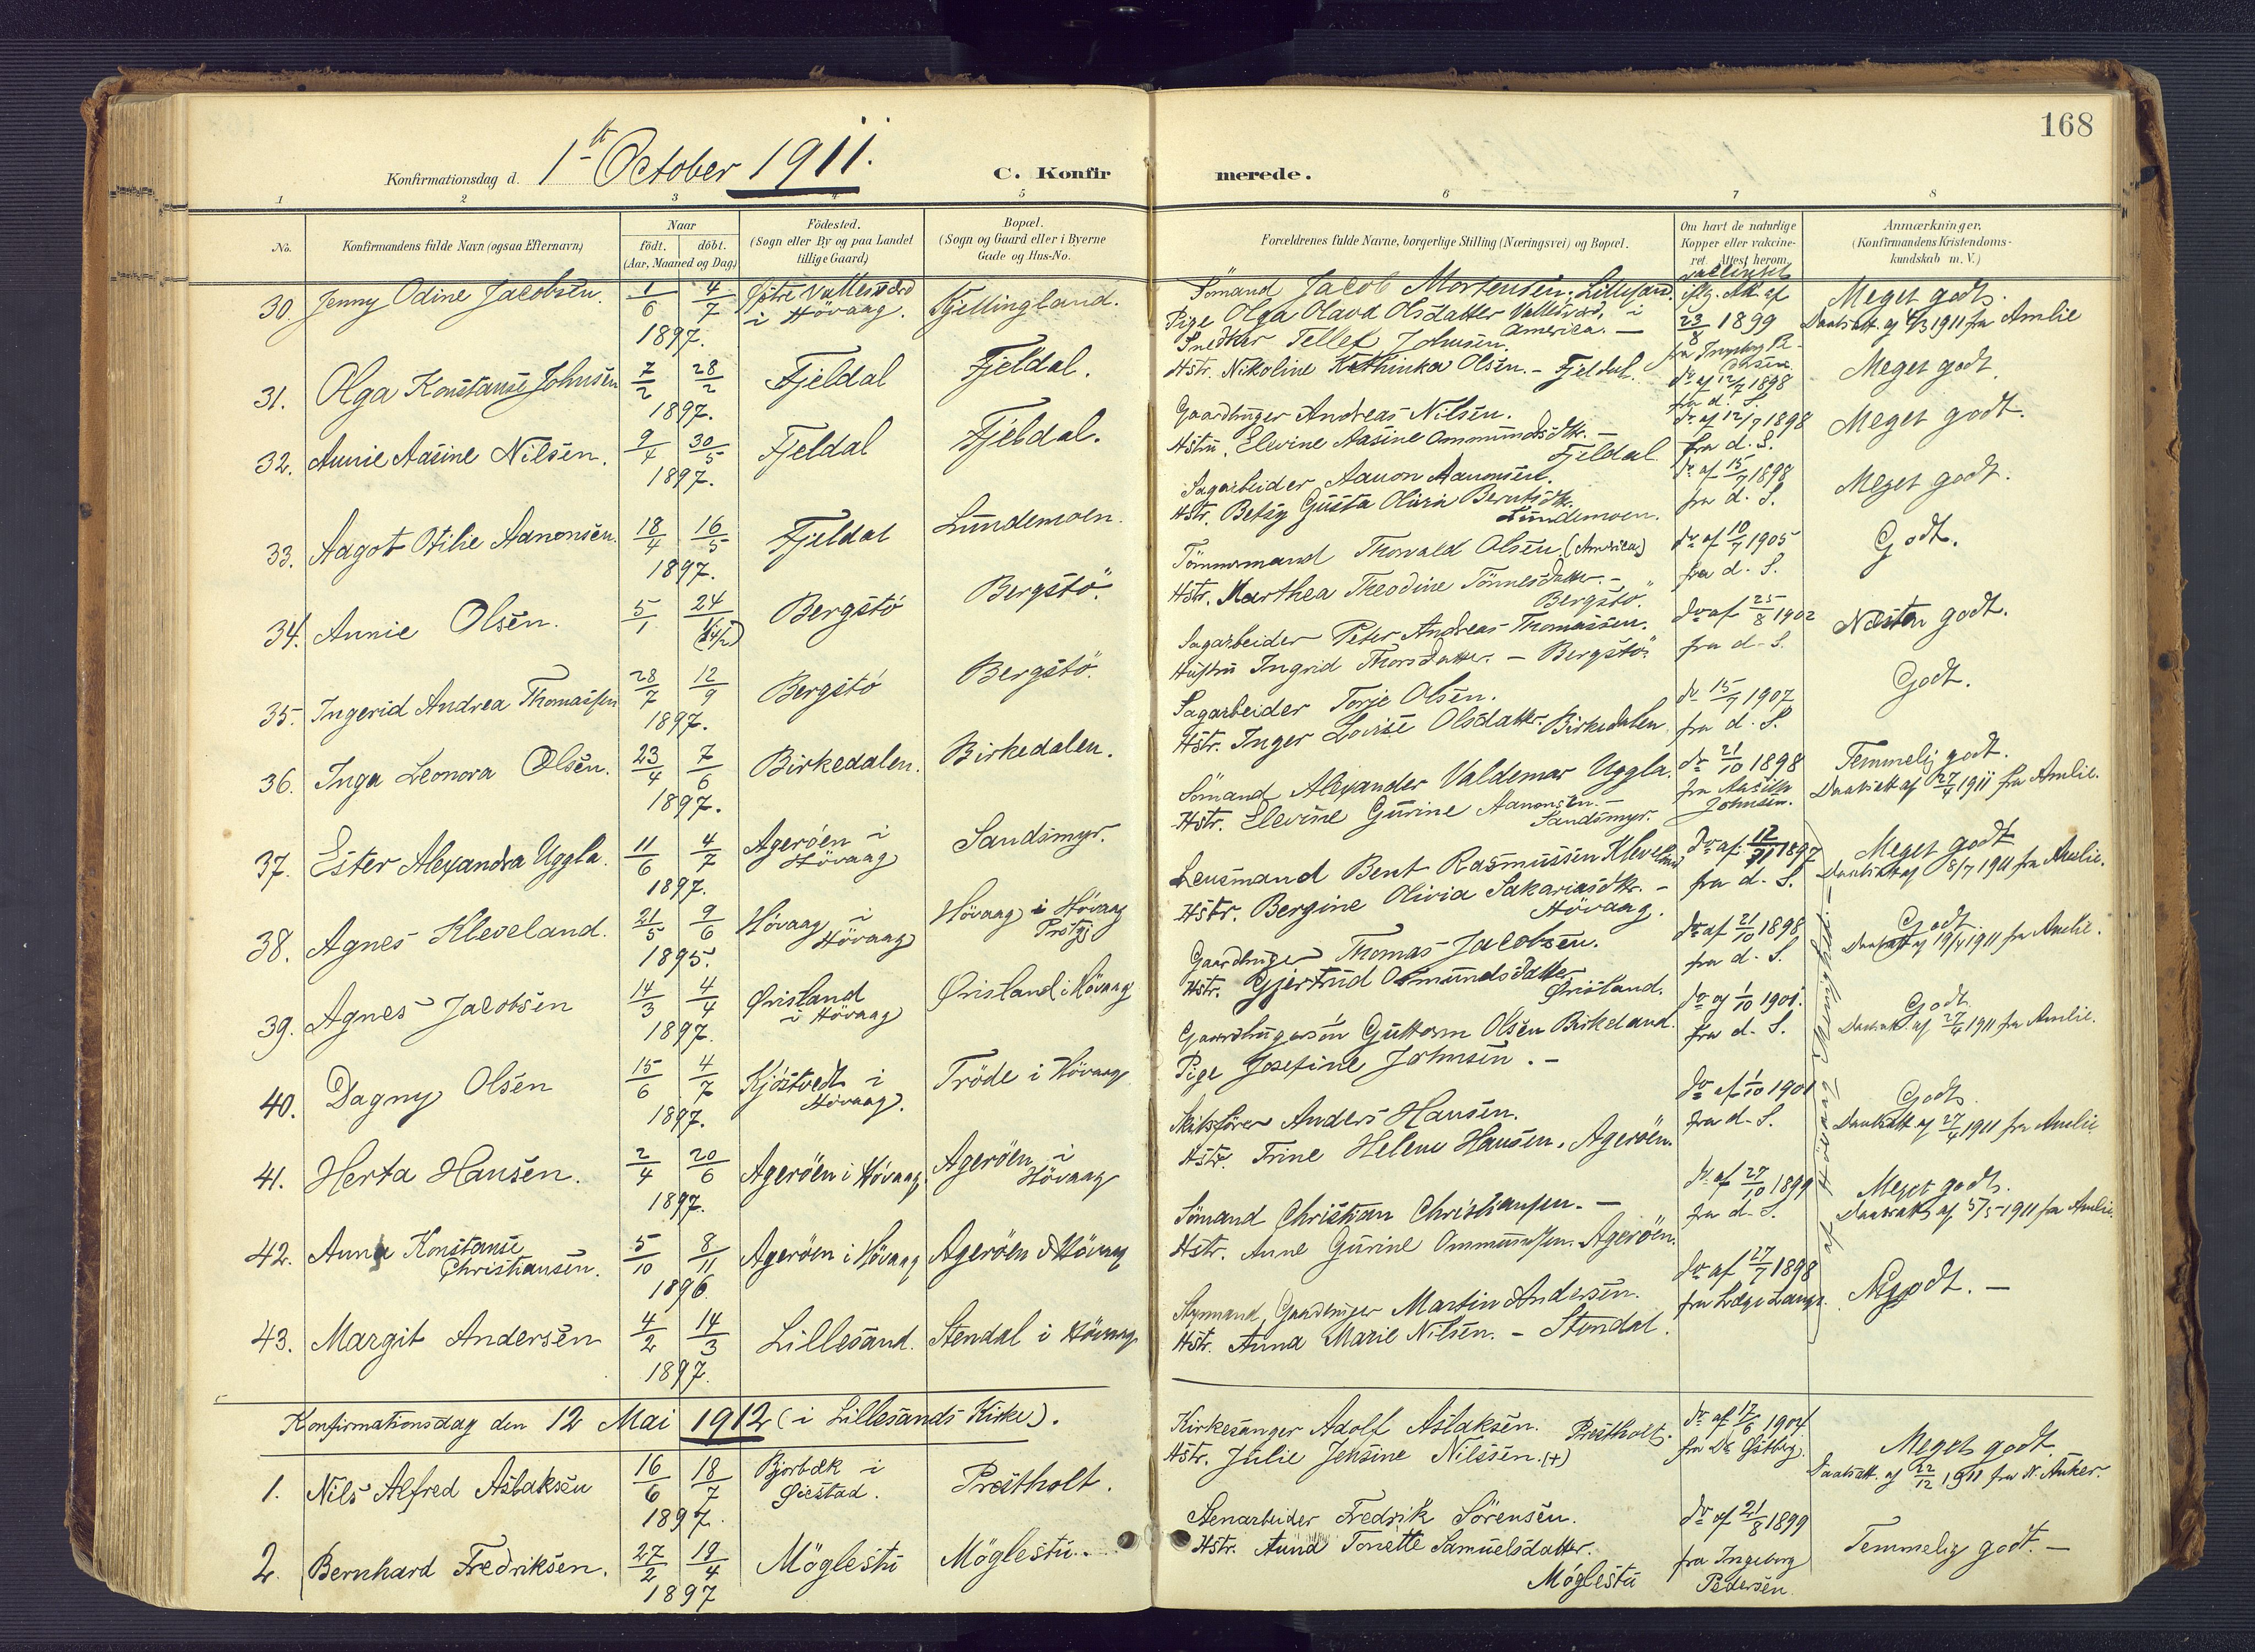 168
Konfirmationsdag d. 1ste October 1911.
C. Konfirmerede.
1 2 3 4 5 6 7 8
No.
Konfirmandens fulde Navn (ogsaa Efternavn)
Naar
födt. döbt.
(Aar, Maaned og Dag)
Födested.
(Sogn eller By og paa Landet
tillige Gaard)
Bopæl.
(Sogn og Gaard eller i Byerne
Gade og Hus-No.
Forældrenes fulde Navne, borgerlige Stilling (Næringsvei) og Bopæl.
Om havt de naturlige
Kopper eller vakcine-
ret. Attest herom.
Anmærkninger.
(Konfirmandens Kristendoms-
kundskab m. V.)
30. Jenny Odine Jacobsen. 1/6 4/7 1897. i Hövaag. Kjellingland.
Sömand Jacob Mortensen, Lillesand.
Pige Olga Olava Olsdatter Vallesværd, i America. —
23/8 1899
Meget godt.
Daabsatt. af 4/3 1911 fra Amlie
31. Olga Konstanse Johnsen 7/2 28/2 1897. Fjeldal Fjeldal.
Snedker Tellef Johnsen.
Hstr. Nikoline Kathinka Olsen. – Fjeldal.
do af 12/7 1898
fra d. S.
Meget godt.
32. Annie Aasine Nilsen. 9/4 30/5 1897. Fjeldal Fjeldal.
Gaardbruger Andreas Nilsen.
Hstru. Elevine Aasine Ommundsdtr. –
Fjeldal
do af 12/7 1898
fra d. S.
Meget godt.
33. Aagot Otilie Aanonsen. 18/4 16/5 1897. Fjeldal Lundemoen.
Sagarbeider Aanon Aanonsen.
Hstr. Betsy Gusta Olava Berntsdtr.
Lundemoen.
do af 15/7 1898
fra d. S.
Meget godt.
34. Annie Olsen. 5/1 24/ Bergstö Bergstö.
Tömmermand Thorvald Olsen. (America)
Hstr. Marthea Theodine Tönnesdatter. –
Bergstö.
do af 10/7 1905
fra d. S.
Godt.
35. Ingerid Andrea Thomassen 28/7 12/9 1897. Bergstö Bergstö.
Sagarbeider Peter Andreas Thomassen.
Hustru Ingrid Thorsdatter. – Bergstö.
do af 25/8 1902
fra d. S.
Næsten godt.
36. Inga Leonora Olsen. 23/4 7/6 1897. Birkedalen. Birkedalen.
Sagarbeider Torje Olsen.
Hstr. Inger Lovise Olsdatter. Birkedalen.
do 15/7 1907
fra d. S.
Godt.
37. Ester Alexandra Uggla. 11/6 4/7 1897. Ageröen i Hövaag Sandsmyr.
Sömand Alexander Valdemar Uggla.
Hstr. Elevine Gurine Aanonsen. –
Sandsmyr.
do 21/10 1898
fra
Johnsen.
Temmelig godt.
Daabsatt af 27/4 1911 fra Amlie.
38. Agnes Kleveland. 21/5 9/6 1895. Hövaag i Hövaag Hövaag i Hövaag
Lensmand Bent Rasmussen Kleveland
Hstr. Bergine Olivia Sakariasdtr. –
Hövaag.
do af 12/11 1897
fra d. S.
Meget godt
Daabsatt af 8/7 1911 fra Amlie.
39. Agnes Jacobsen 14/3 4/4 1897. Ørisland i Hövaag Ørisland i Hövaag
Gaardbruger Thomas Jacobsen.
Hstr. Gjertrud Osmundsdatter
Ørisland.
do af 21/10 1898
fra d. S.
Godt.
Daabsatt af 19/4 1911 fra Amlie.
40. Dagny Olsen 15/6 4/7 1897. Kjöstvedt i Hövaag. Tröde i Hövaag
Gaardbrugersön Guttorm Olsen Birkeland.
Pige Josefine Johnsen. –
do af 1/10 1901.
fra d. S.
Godt.
Daabsatt af 27/4 1911 fra Amlie.
41. Herta Hansen. 2/4 20/6 1897. Ageröen i Hövaag Ageröen i Hövaag
Skibsförer Anders Hansen.
Hstr. Trine Helene Hansen. Ageröen.
do af 1/10 1901
fra d. S.
Godt.
Daabsatt af 27/4 1911 fra Amlie
42. Anna Konstanse Christiansen. 5/10 8/11 1896. Ageröen i Hövaag Ageröen i Hövaag
Sömand Christian Christiansen. –
Hstr. Anne Gurine Ommundsen. Ageröen.
do af 27/10 1899
fra d. S.
Meget godt.
Daabsatt af 5/5 1911 fra Amlie.
43. Margit Andersen 4/2 14/3 1897. Lillesand. Stendal i Hövaag
Styrmand, Gaardbruger Martin Andersen.
Hstr. Anna Marie Nilsen. – Stendal.
do af 27/7 1898
fra Læge Lange.
Konfirmationsdag den 12 Mai 1912 (i Lillesands Kirke).
1. Nils Alfred Aslaksen 16/6 18/7 1897. Bjorbæk i Øiestad. Præstholt.
Kirkesanger Adolf Aslaksen. Præstholt.
Hstr. Julie Jensine Nilssen. (+)
do af 17/6 1904
fra Dr.
Meget godt.
Daabsatt. af 22/12 1911 fra N. Anker.
2. Bernhard Fredriksen. 27/2 19/4 1897 Möglestu Möglestu.
Stenarbeider Fredrik Sörensen.
Hstr. Tonette Samuelsdatter.
Möglestu
do af 21/8 1899
fra Ingeborg
Pedersen.
Temmelig godt. –